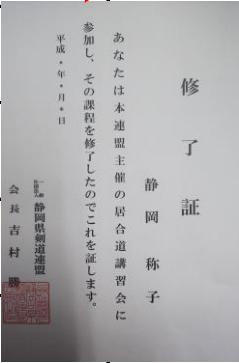 修了証
静岡称子
あなたは本連盟主催の居合道講習会に
参加し、その課程を修了したのでこれを証します。
平成*年*月*日
一般社団法人 静岡県剣道連盟
会長 吉村 勝